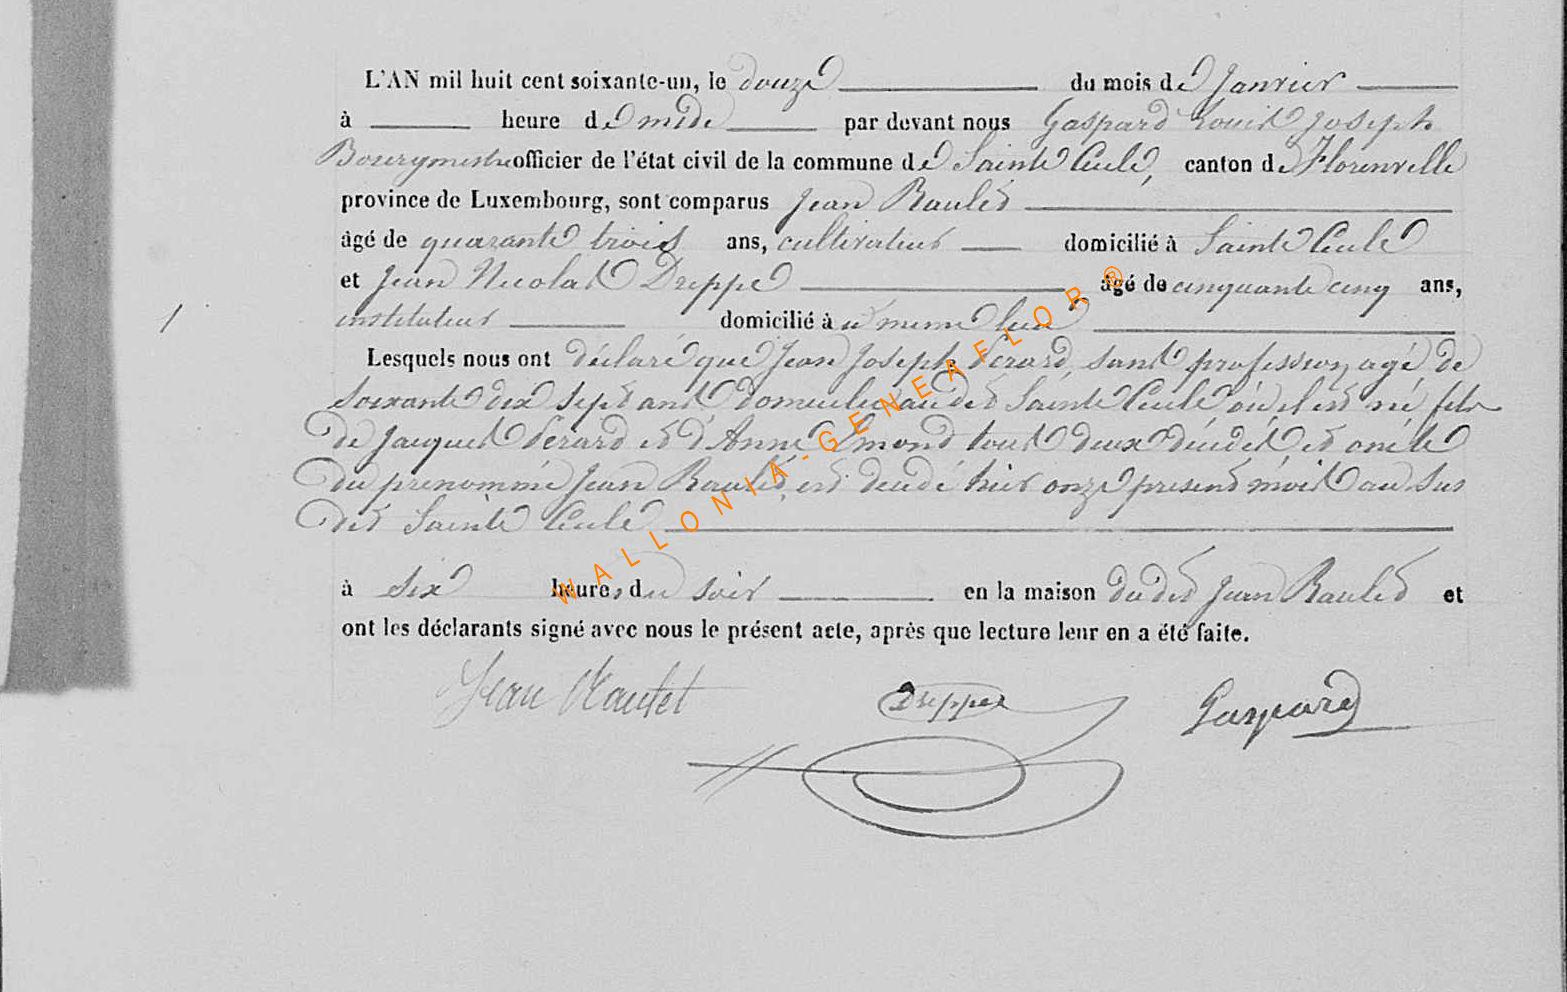 L'AN mil huit cent soixante-un, le douze du mois de Janvier
à heure de midi par devant nous Gaspard Louis Joseph
Bourgmestre officier de l'état civil de la commune de Sainte Cécile, canton de Florenville
province de Luxembourg, sont comparus Jean Raulet
âgé de quarante trois ans, cultivateur domicilié à Sainte Cécile
et Jean Nicolas Dreppe âgé de cinquante cinq ans,
1
instituteur domicilié à u meme lieu
Lesquels nous ont déclaré que Jean Joseph Perard, sans profession, agé de
soixante dix sept ans domicilié au dit Sainte Cécile où il est né fils
de Jacques Perard et d'Anne Emond tous deux décédés, et oncle
du prénommé Jean Raulet, est decedé hier onze present mois au sus
dit Sainte Cécile
à six heures du soir en la maison du dit Jean Raulet et
ont les déclarants signé avec nous le présent acte, après que lecture leur en a été faite.
Jean Raulet Dreppe Gaspard
WALLONIA-GENEAFLOR®